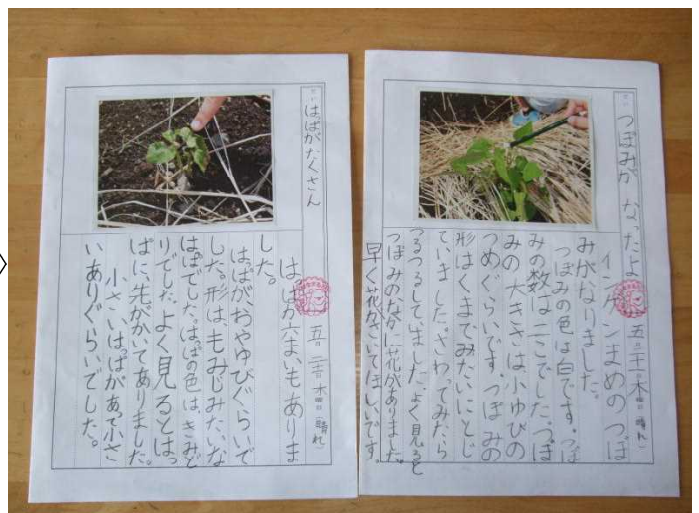 つぼみが なったよ
五月 木曜日 (晴れ)
インゲンまめのつぼ
みがなりました。
つぼみの色は白です。つぼ
みの数は二こでした。つぼ
みの大きさは小ゆびの
つめぐらいです。つぼみの
形はくまでみたいにとじ
ていました。さわってみたら
つるつるしていました。よく見ると
つぼみのなかに花がありました。
早く花がさいてほしいです。
はっぱがたくさん
五月 木曜日 (晴れ)
はっぱが六まいもありま
した。
はっぱがおやゆびぐらいで
した。形は、もみじみたいな
はっぱでした。はっぱの色は、きみど
りでした。よく見るとはっ
ぱに、先がかいてありました。
小さいはっぱがあって小さ
いありぐらいでした。